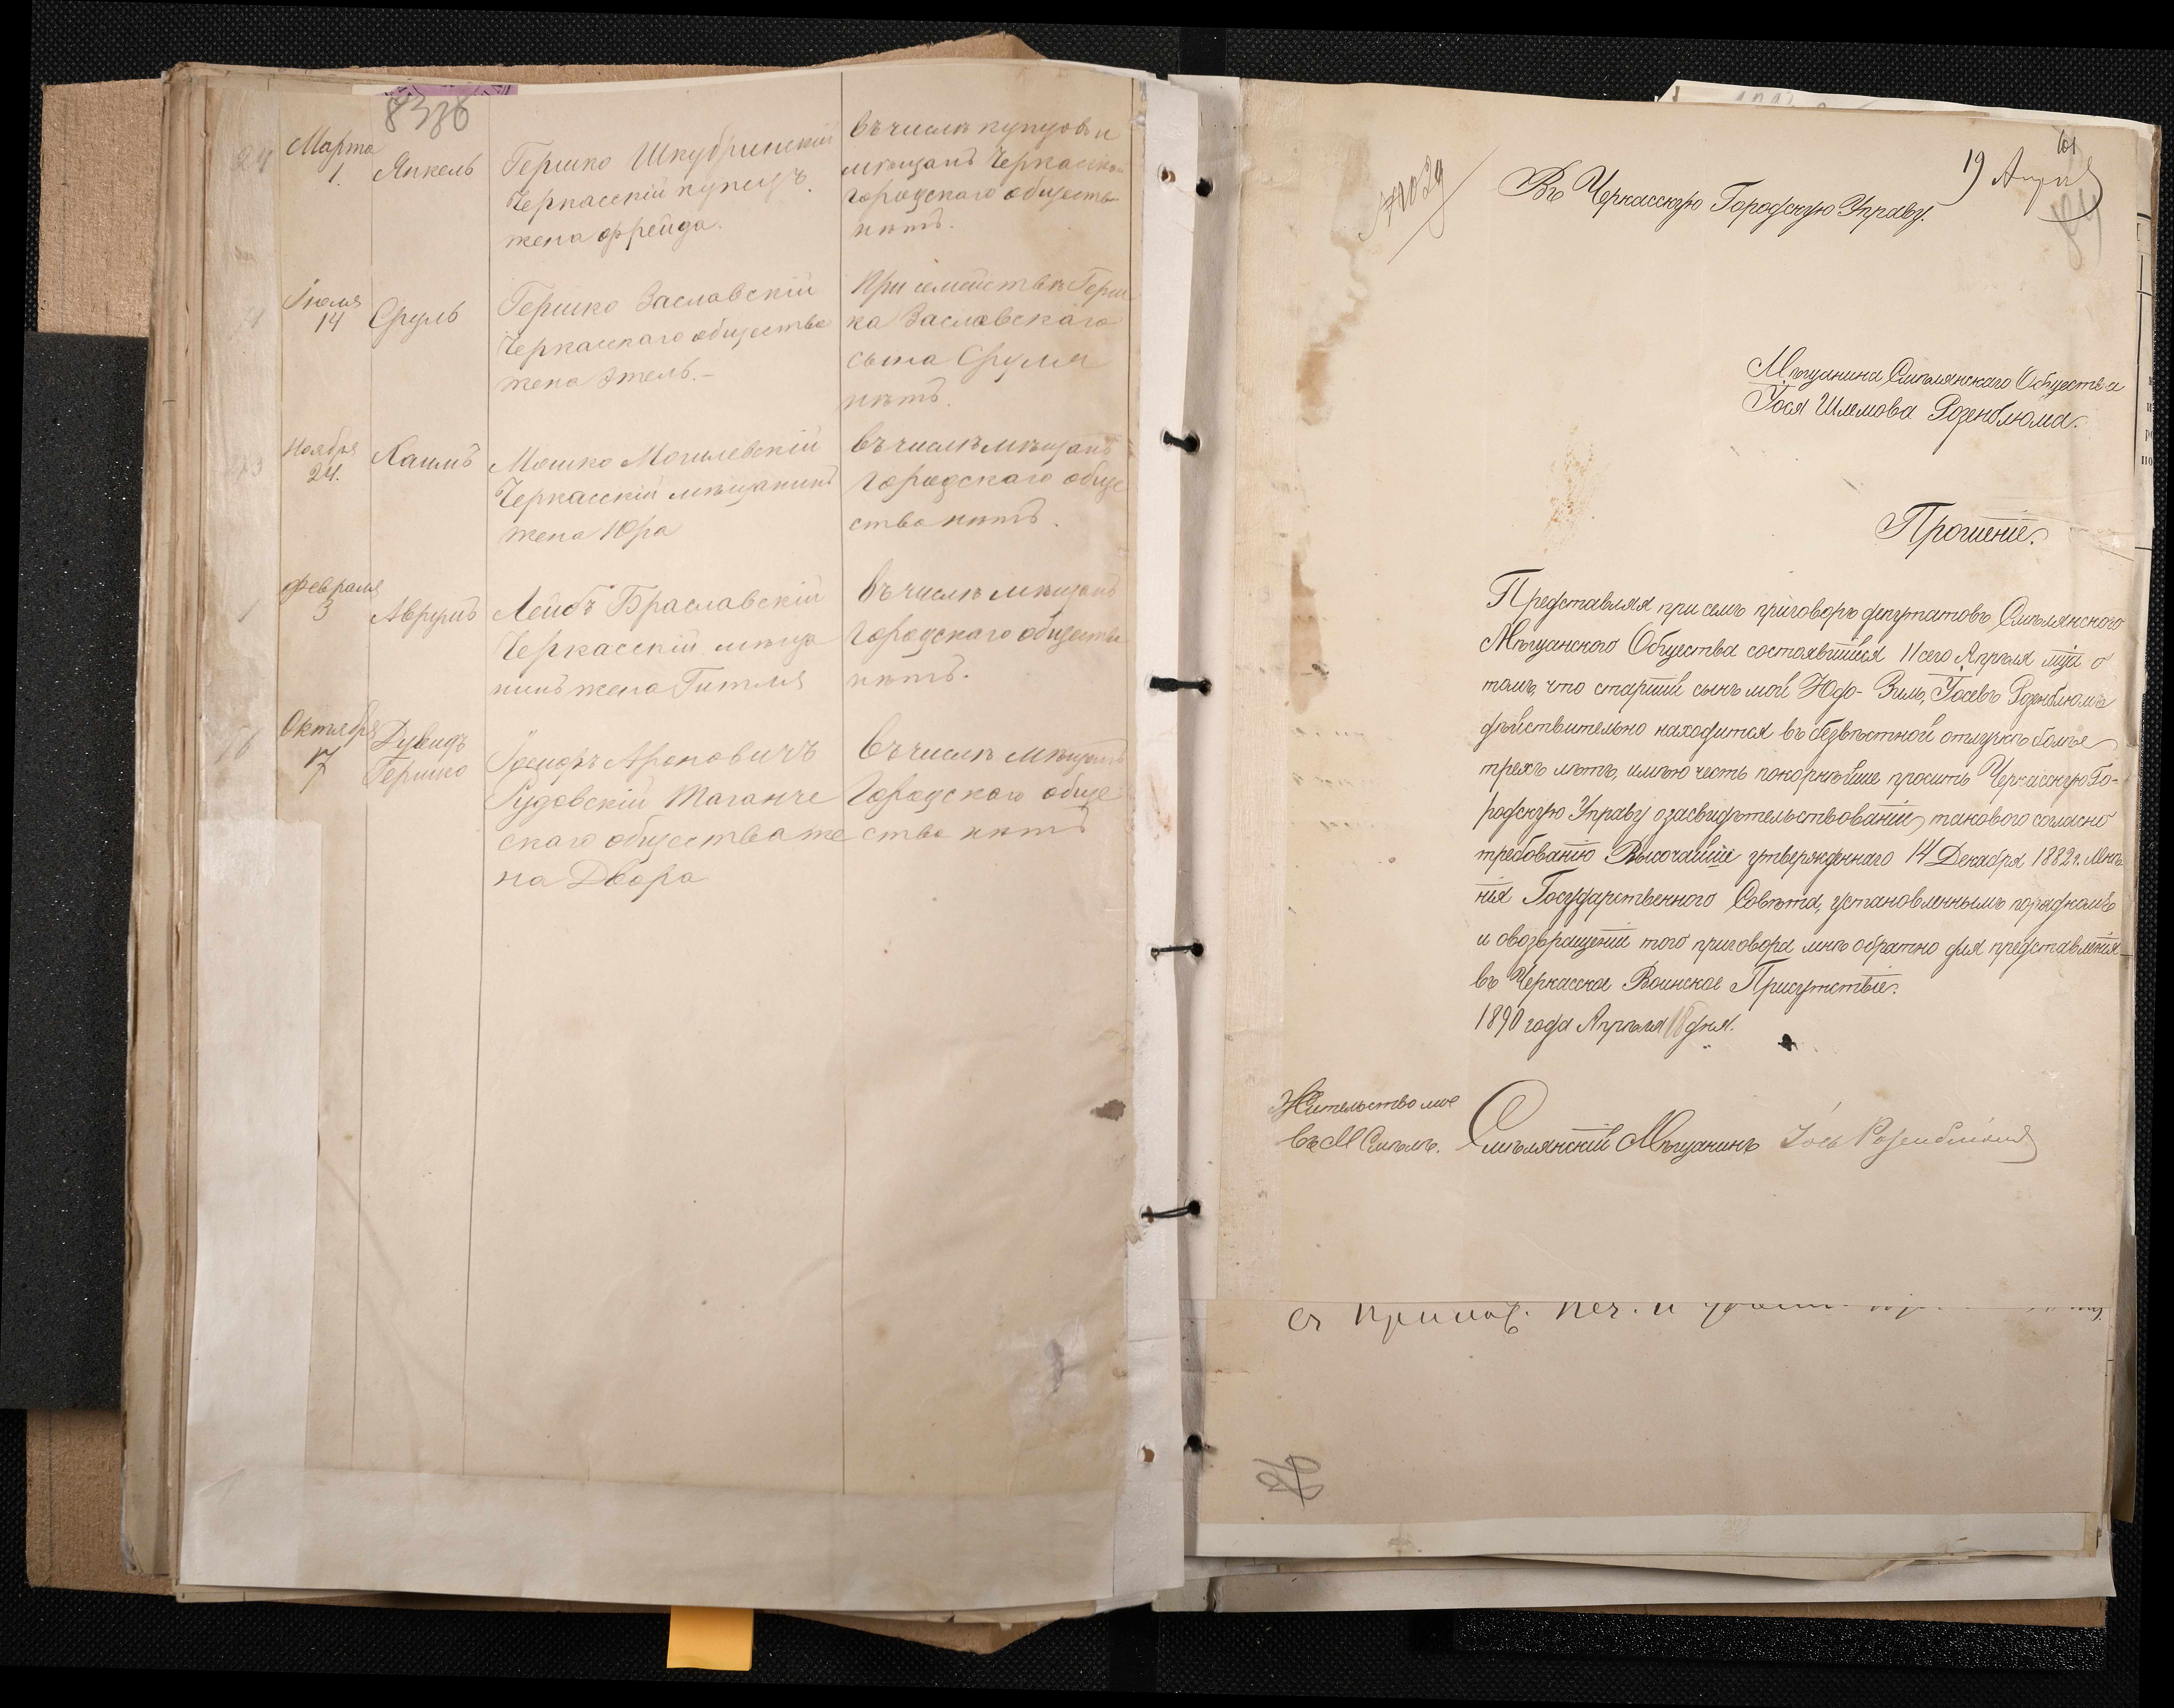 8336
24
Марта
1.
Янкель
Гершко Шкубринскій
Черкасскій купецъ.
жена Фрейда.
въ числѣ купцовъ и
мѣщанъ Черкасскаго
городского общества
нѣтъ.
Іюля
14
Сруль
Гершко Заславскій
Черкасскаго общества
жена Этель.-
При семействѣ Герш
ка Заславскаго
сына Сруля
нѣтъ.
Ноября
24.
Хаимъ
Мошко Могилевскій
Черкасскій мѣщанинъ
жена Юра
въ числѣ мѣщанъ
городскаго обще
ства нѣтъ.
Февраля
3
Аврумъ
Лейбъ Браславскій
Черкасскій мѣща
нинъ жена Гитля
въ числѣ мѣщанъ
городскаго общества
нѣтъ.
Октября
17
Дувидъ
Гершко
Іосифъ Ароновичъ
Рудовскій Таганче
скаго общества же
на Двора
въ числѣ мѣщанъ
городского обще
ства нѣтъ
19 Апрѣл
Въ Черкасскую Городскую Управу.
Мѣщанина Смѣлянскаго Общества
Іося Шлемова Розенблюма.
Прошеніе.
Представляя при семъ приговоръ депутатовъ Смѣлянского
Мѣщанского Общества состоявшійся 11 сего Апрѣля мца о
томъ, что старшій сынъ мой Юдо-Зиль, Іосевъ Розенблюмъ
дѣйствительно находится въ безвѣстной отлучкѣ болѣе
трехъ лѣтъ, имѣю честь покорнѣйше просить Черкасскую Го-
родскую Управу о засвидѣтельствованіи таковаго согласно
требованію Высочайше утвержденнаго 14 Декабря 1882 г. Мнѣ-
нія Государственного Совѣта, установленнымъ порядкомъ
и о возвращеніи того приговора мнѣ обратно для представленія
въ Черкасское Воинское Присутствіе.
1890 года Апрѣля 18 дня.
Жительство мое
въ М Смѣлѣ.
Смѣлянскій Мѣщанинъ Іось Розенблюмъ